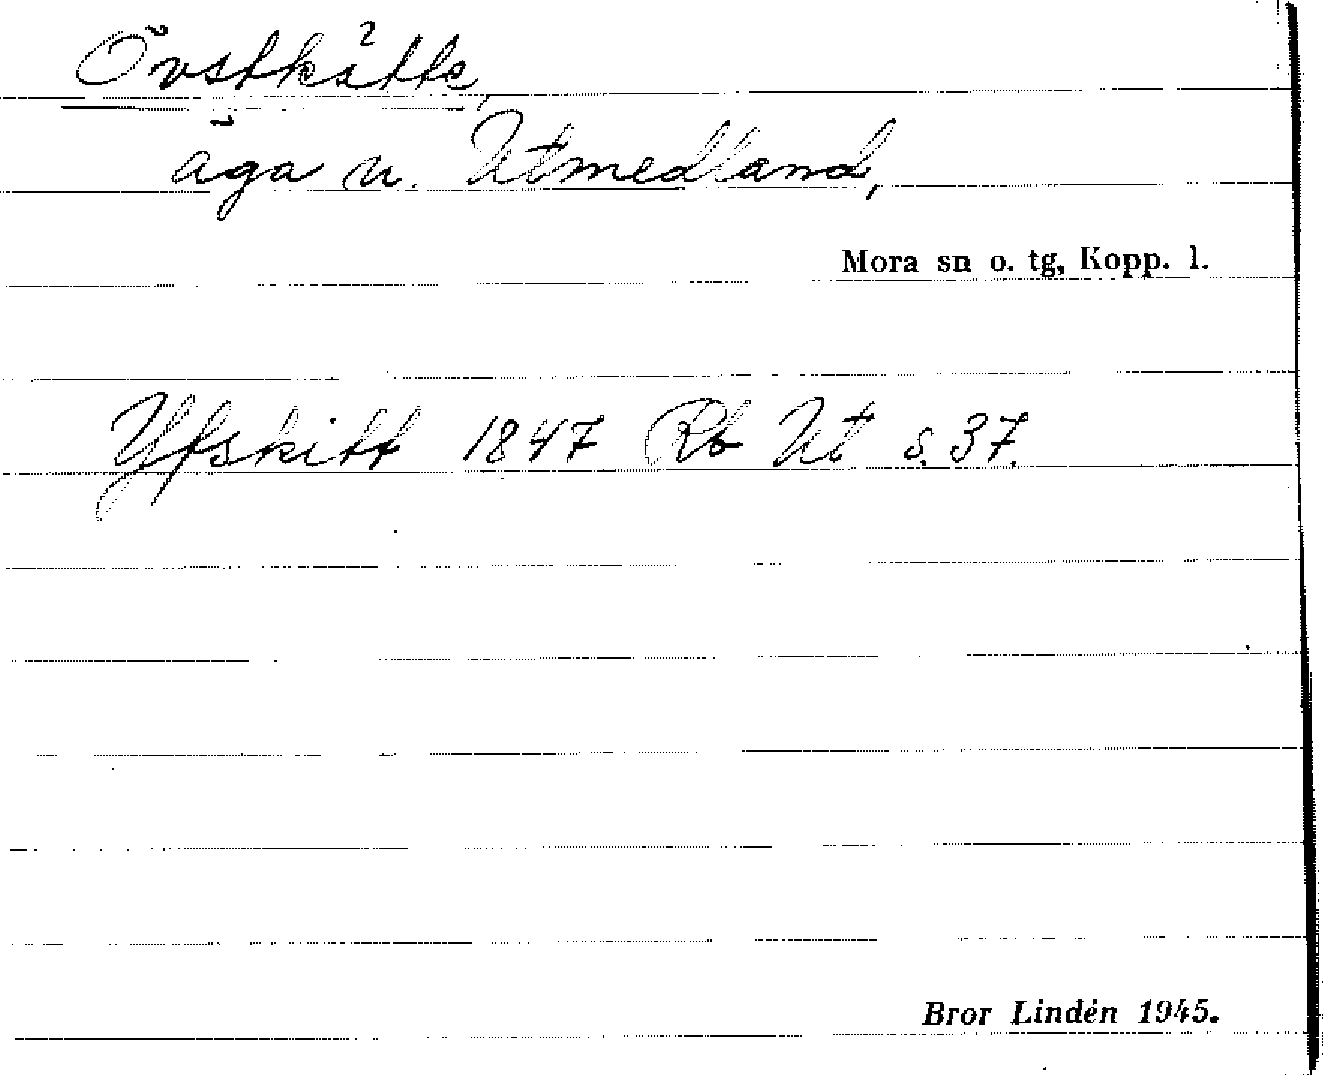 Övstkätte,
äga u. Utmedland,
Mora sn o. tg, Kopp. l.
Yfskift 1847 Rb Ut s. 37.
Bror Lindén 1945.